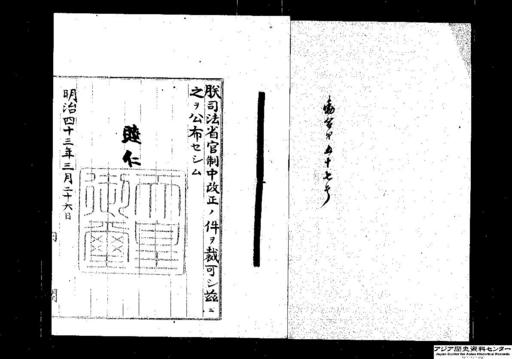 勅令第五十七号
朕司法省官制中改正ノ件ヲ裁可シ茲ニ
之ヲ公布セシム
睦仁
天皇御璽
明治四十三年三月二十六日
内閣
アジア歴史資料センター
Japan Center for Asian Historical Records